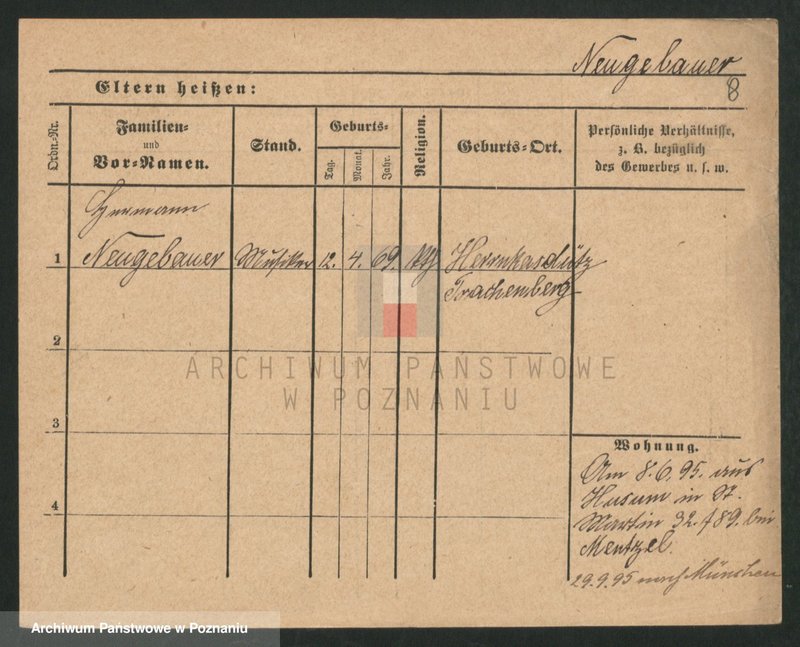 Neugebauer
8
Eltern heißen:
Ordn.-Nr.
Familien-
und
Vor-Namen.
Stand.
Geburts-
Tag.
Monat.
Jahr.
Religion.
Geburts-Ort.
Persönliche Verhältnisse,
z. B. bezüglich
des Gewerbes u. s. w.
Hermann
1 Neugebauer Musiker 12. 4. 69. Herrnkaschütz
Trachenberg
2
3
4
ARCHIWUM PAŃSTWOWE
W POZNANIU
Wohnung.
Am 8.6.95. aus
Husum in St.
Martin 32. 489. bei
Mentzel.
29.9.95 nach München
Archiwum Państwowe w Poznaniu